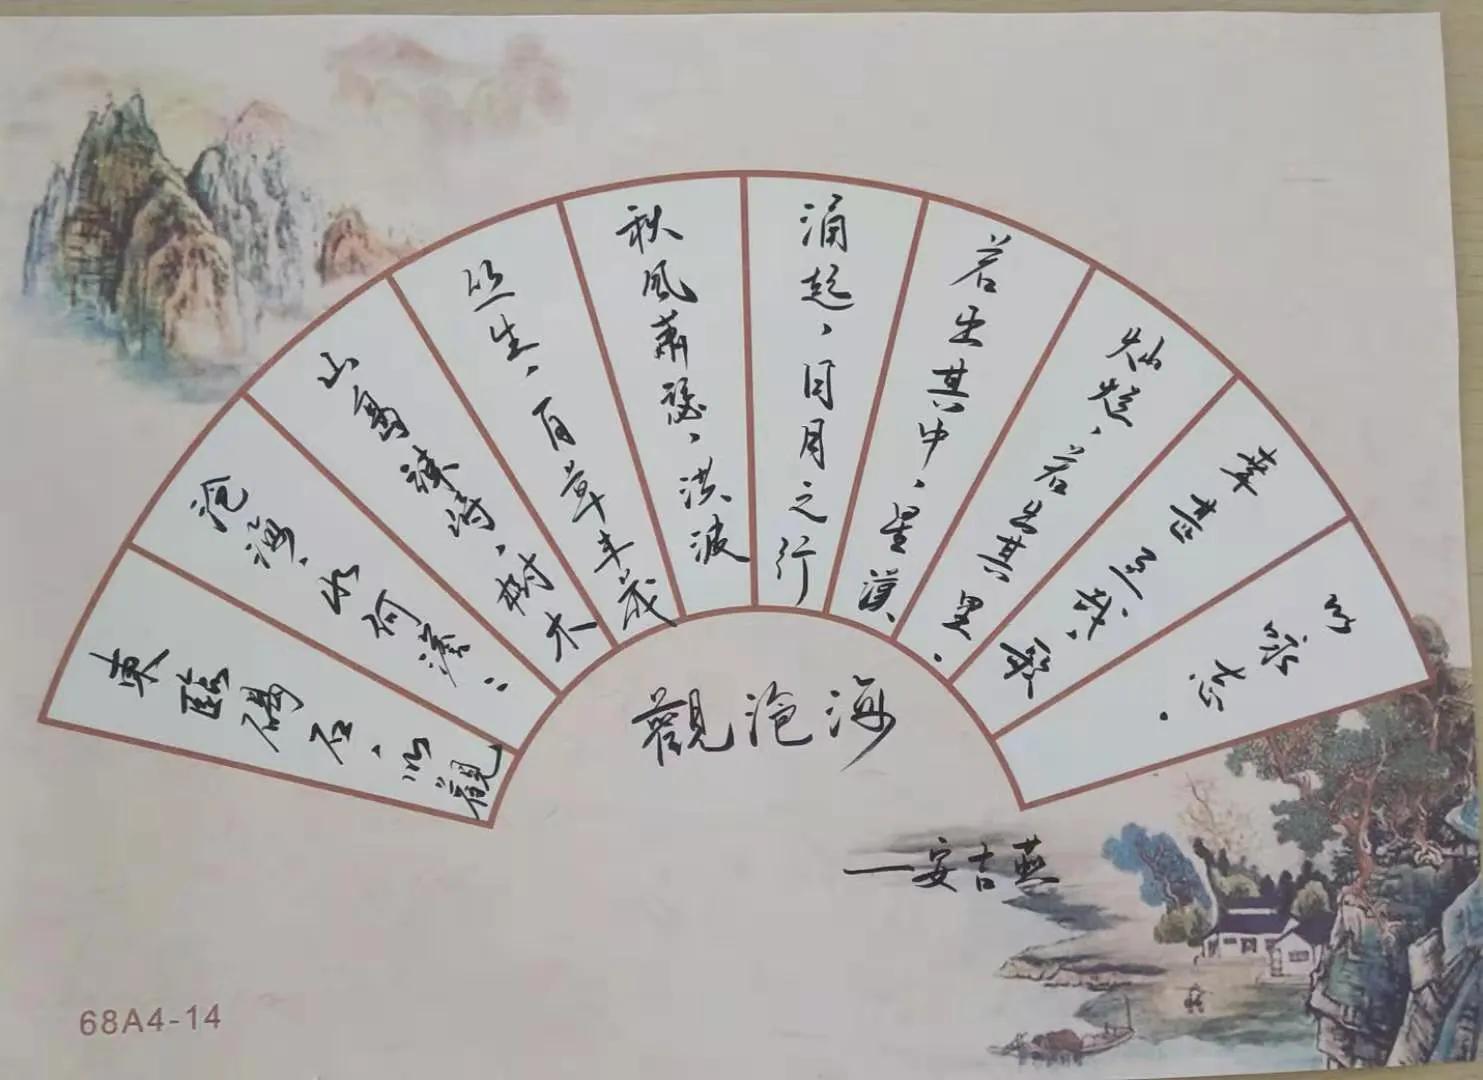 觀沧海
東臨碣石、以觀
沧海、水何澹：
山島竦峙、樹木
丛生，百草丰茂
秋风萧瑟，洪波
涌起，日月之行
若出其中，星漢
灿烂，若出其里.
幸甚至哉，歌
以咏志.
——安吉燕
68A4-14